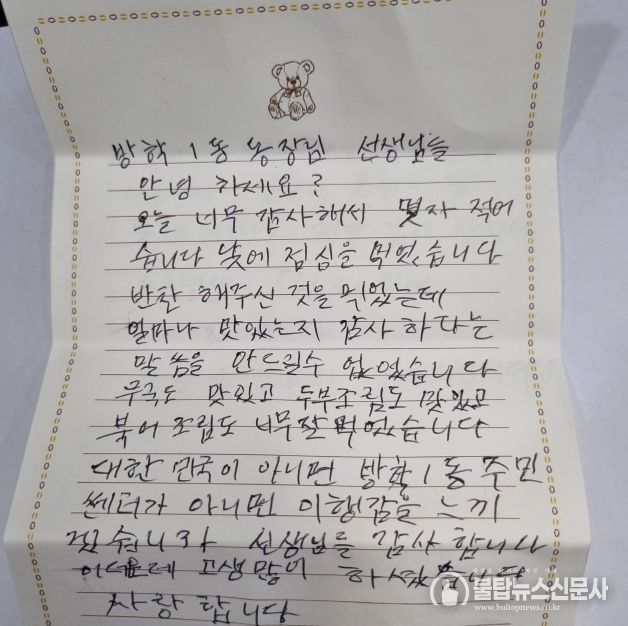 방학 1동 동장님 선생님들
안녕 하세요?
오늘 너무 감사해서 몇자 적어
습니다 낮에 점심을 먹었습니다
반찬 해주신 것을 먹었는데
얼마나 맛있는지 감사 하다는
말씀을 안드릴수 없었습니다
무국도 맛있고 두부조림도 맛있고
북어 조림도 너무잘 먹었습니다
대한 민국이 아니면 방학1동 주민
쎈터가 아니면 이행감을 느끼
선생님들 감사 합니다
고생많이
사랑 합니다
불탑뉴스신문사
www.bultopnews.co.kr